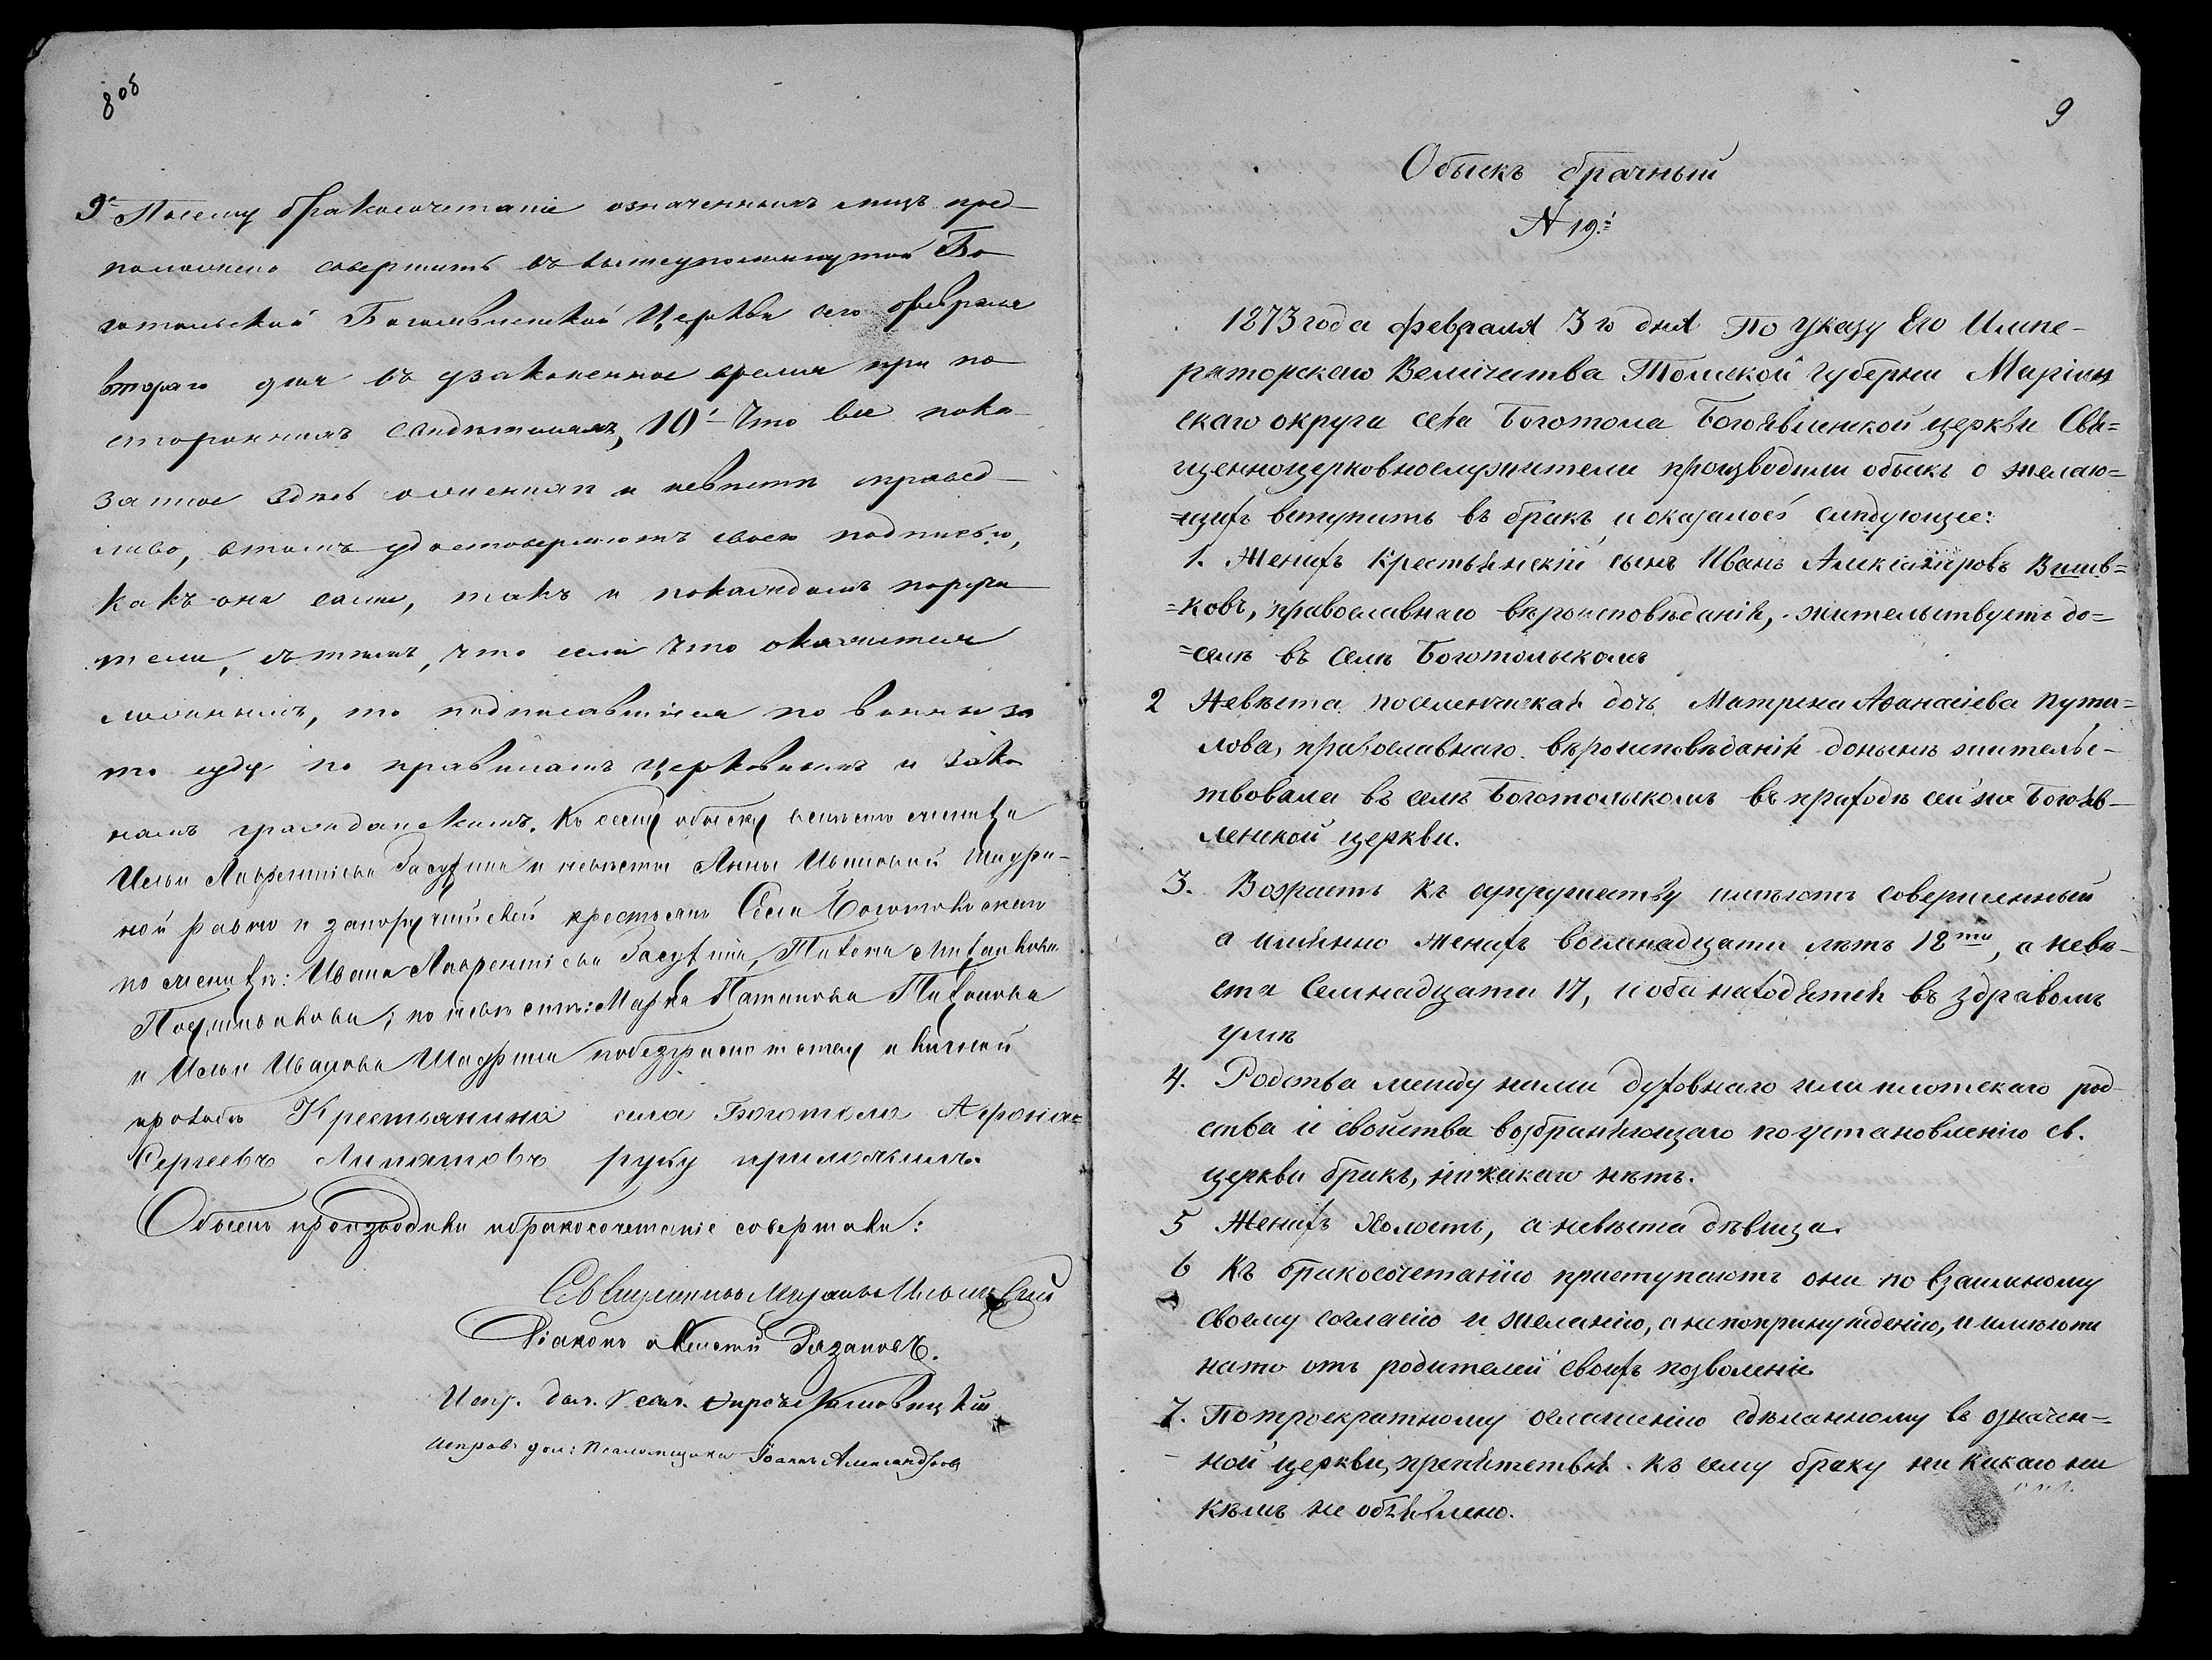 8об
9. Посему бракосочетаніе означенныхъ лицъ пред-
положено совершить въ вышеупомянутой Бо-
готольской Богоявленской Церкви сего февраля
втораго дня въ узаконенное время при по-
стороннихъ свидѣтеляхъ, 10 - Что все пока-
занное здѣсь о женихѣ и невѣстѣ справед-
ливо, въ томъ удостовѣряютъ своею подписью,
какъ они сами, такъ и по каждомъ поручи-
тели, съ тѣмъ, что если что окажется
ложнымъ, то подписавшіеся по винны за
то суду по правиламъ церковнымъ и зако-
намъ гражданскимъ. Къ сему обыску вмѣсто жениха
Ильи Лаврентіева Засухина и невѣсты Анны Ивановой Шадри-
ной равно и запоручителей крестьянъ Села Боготольскаго
по женихѣ: Ивана Лаврентіева Засухина, Пахома
по невѣстѣ: Марка Потапова Пахомова
и Ильи Иванова Шадрина по безграмотству и личной
прозьбѣ Крестьянинъ села Боготола Афонія=
Сергеевъ Липатовъ руку приложилъ.
Обыскъ производили и бракосочетаніе совершали:
Священникъ Ильинскій
Діаконъ Алексѣй Рязановъ.
Испр. дол. Псал.
Исправ. дол: Псаломщика Іоаннъ Александровъ
9
Обыскъ брачный
N 19.
1873 года февраля 3 го дня По указу Его Импе-
раторскаго Величества Томской губерни Маріин
скаго округа села Боготола Богоявленской церкви Свя=
щенноцерковнослужители производили обыскъ о желаю=
=щихъ вступить въ бракъ, и оказалось слѣдующее:
1. Женихъ Крестьянскій сынъ Иванъ Александровъ Вшив=
=ковъ, православнаго вѣроисповѣданія, жительствуетъ до=
=селѣ въ Селѣ Боготольскомъ
2 Невѣста поселенческая дочь Матрена Аѳанасіева Пути=
лова, православнаго вѣроисповѣданія донынѣ жительс-
твовала въ селѣ Боготольскомъ въ приходѣ сей же Богояв-
ленской церкви.
3. Возрастъ къ супружеству имѣютъ совершенный
а именно женихъ восмнадцати лѣтъ 18ти, а невѣ-
ста Семнадцати 17, и оба находятся въ здравомъ
умѣ
4. Родства между ними духовнаго или плотскаго род
ства и свойства возбраняющаго по установленію св.
церкви бракъ, никакаго нѣтъ.
5 Женихъ Холостъ, а невѣста дѣвица.
6 Къ бракосочетанію приступаютъ они по взаимному
своему согласію и желанію, а не по принужденію, и имѣютъ
на то отъ родителей своихъ позволеніе
7. По троекратному оглашенію сдѣланному въ означен=
ной церкви, препятствія къ сему браку ни какаго ни
кѣмъ не объявлено.